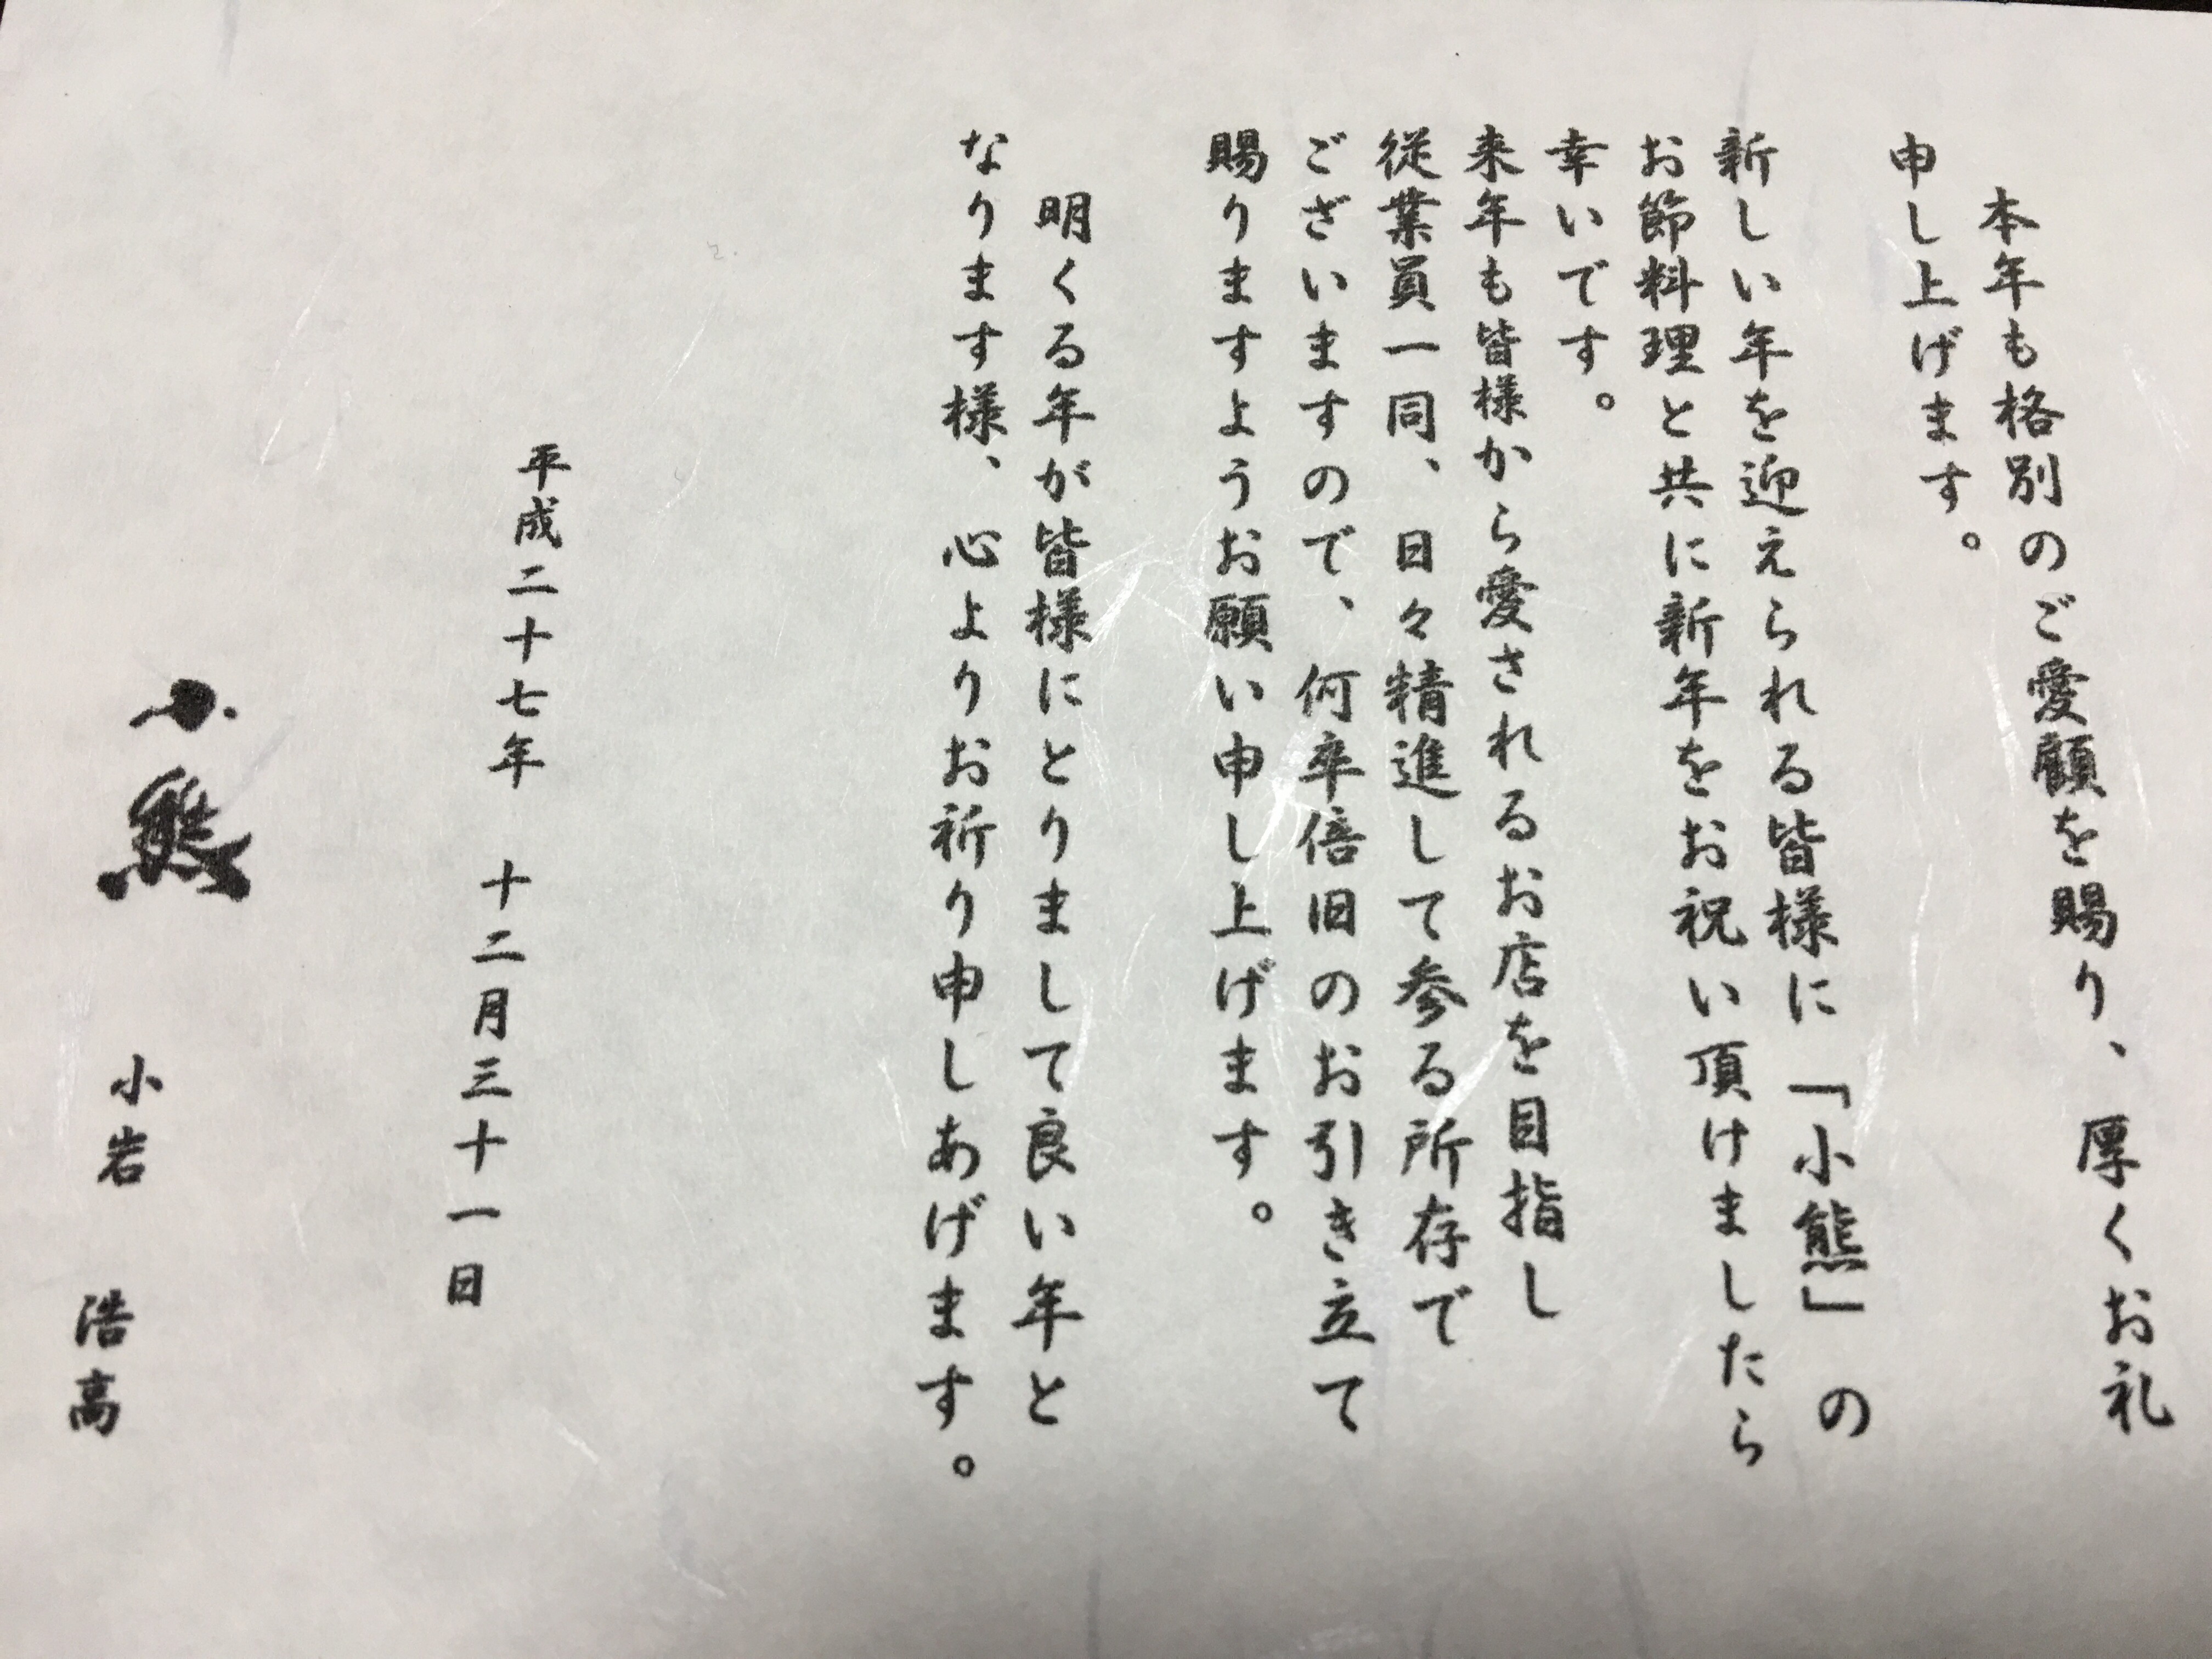 本年も格別のご愛顧を賜り、厚くお礼
申し上げます。
新しい年を迎えられる皆様に「小熊」の
お節料理と共に新年をお祝い頂けましたら
幸いです。
来年も皆様から愛されるお店を目指し
従業員一同、日々精進して参る所存で
ございますので、何卒倍旧のお引き立て
賜りますようお願い申し上げます。
明くる年が皆様にとりまして良い年と
なります様、心よりお祈り申しあげます。
平成二十七年 十二月三十一日
小熊 小岩 浩高